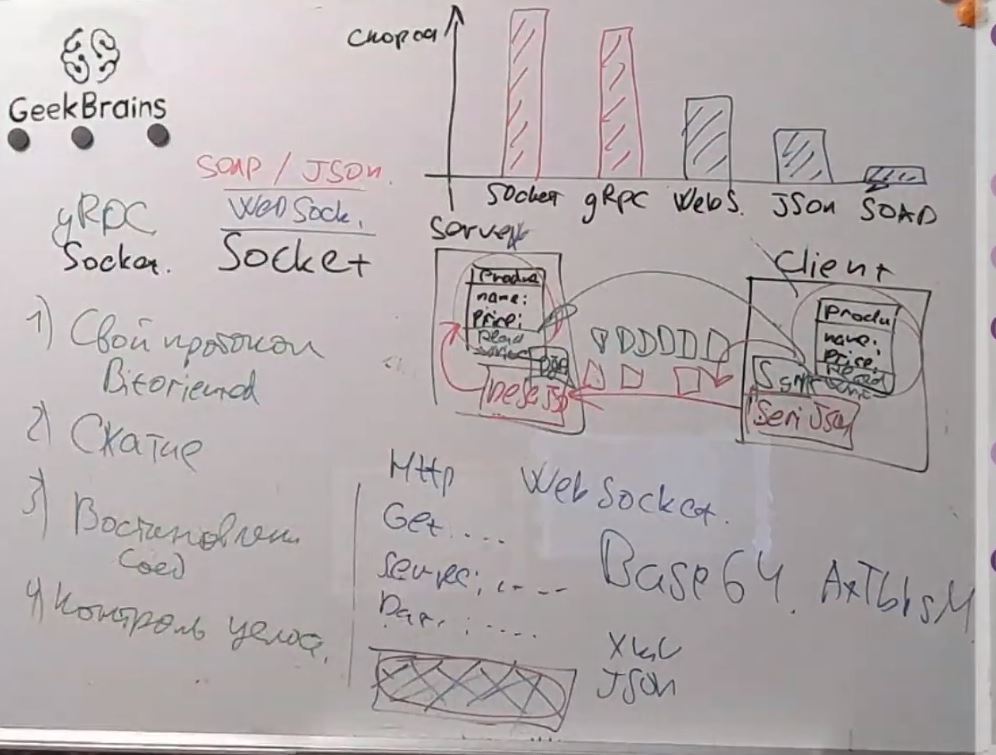 GeekBrains
скорос
Socket gRPC WebS. JSon SOAP
SOAP / JSon.
WebSock.
Socket
gRPC
Socket.
1) Свой протокол
Bitoriented
2) Сжатие
3) Востановлени
Соед
4) Контроль целос.
Server
Produc
name:
price:
Client
Produ
name:
price:
Seri JSon
Http
Get....
Server: ....
Dat. : ....
WebSocket.
Base64.
XML
JSon